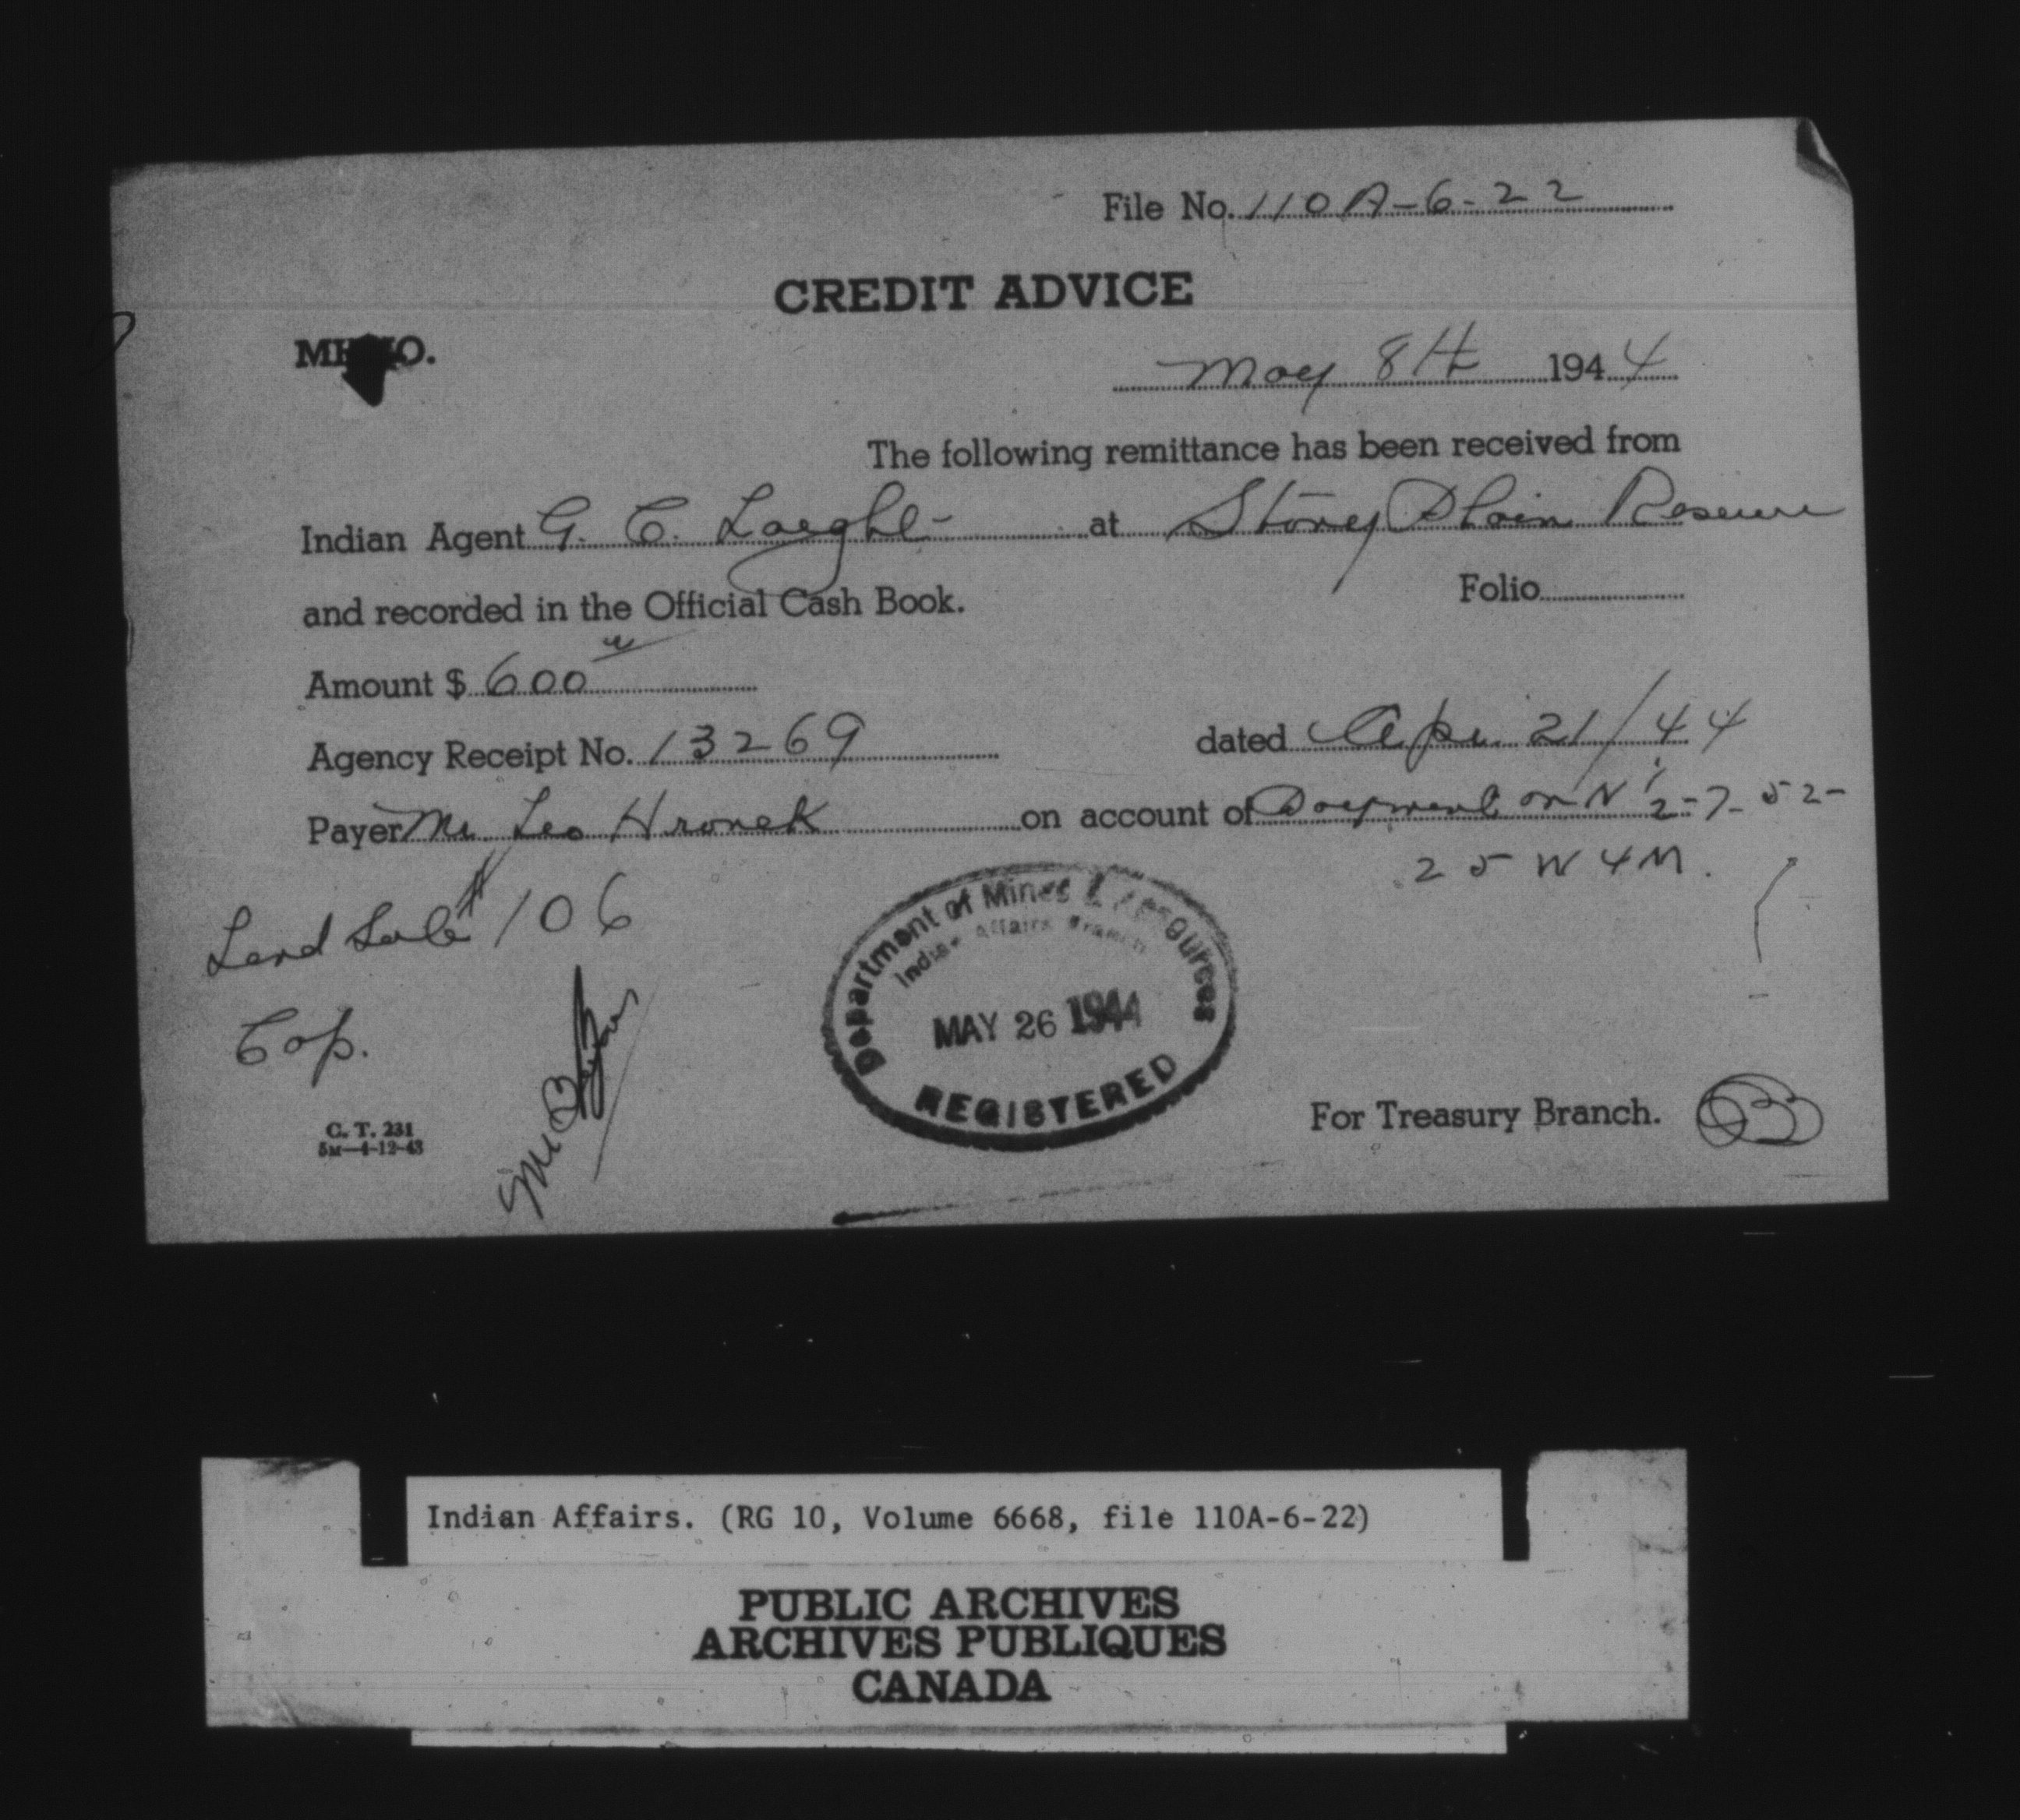 File No. 110A-6-22
CREDIT ADVICE
MEMO.
May 8th 1944
The following remittance has been received from
Indian Agent G. C. Laight at Stony Plain Reserve
and recorded in the Official Cash Book.
Folio
Amount $ 600
Agency Receipt No. 13269 dated Apr. 21/44
Payer Mr. Leo Hronek on account of Payment on N ½-7-52-
25 W 4 M.
Land Sale # 106
Cap.
Department of Mines & Resources
Indian Affairs Branch
MAY 26 1944
REGISTERED
C. T. 231
5M—4-12-43
For Treasury Branch.
Indian Affairs. (RG 10, Volume 6668, file 110A-6-22)
PUBLIC ARCHIVES
ARCHIVES PUBLIQUES
CANADA